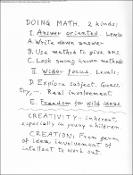 DOING MATH. 2 kinds:
I. Answer oriented. Levels:
A. Write down answer
B. Use methods to give ans.
C. Look among known methods
II. Wider focus. Levels:
D. Explore subject. Guess,
try, — Real involvement
E. Freedom for wild ideas
CREATIVITY - inherent,
especially in young children
CREATIONS: From germ
of idea, involvement of
intellect to work out